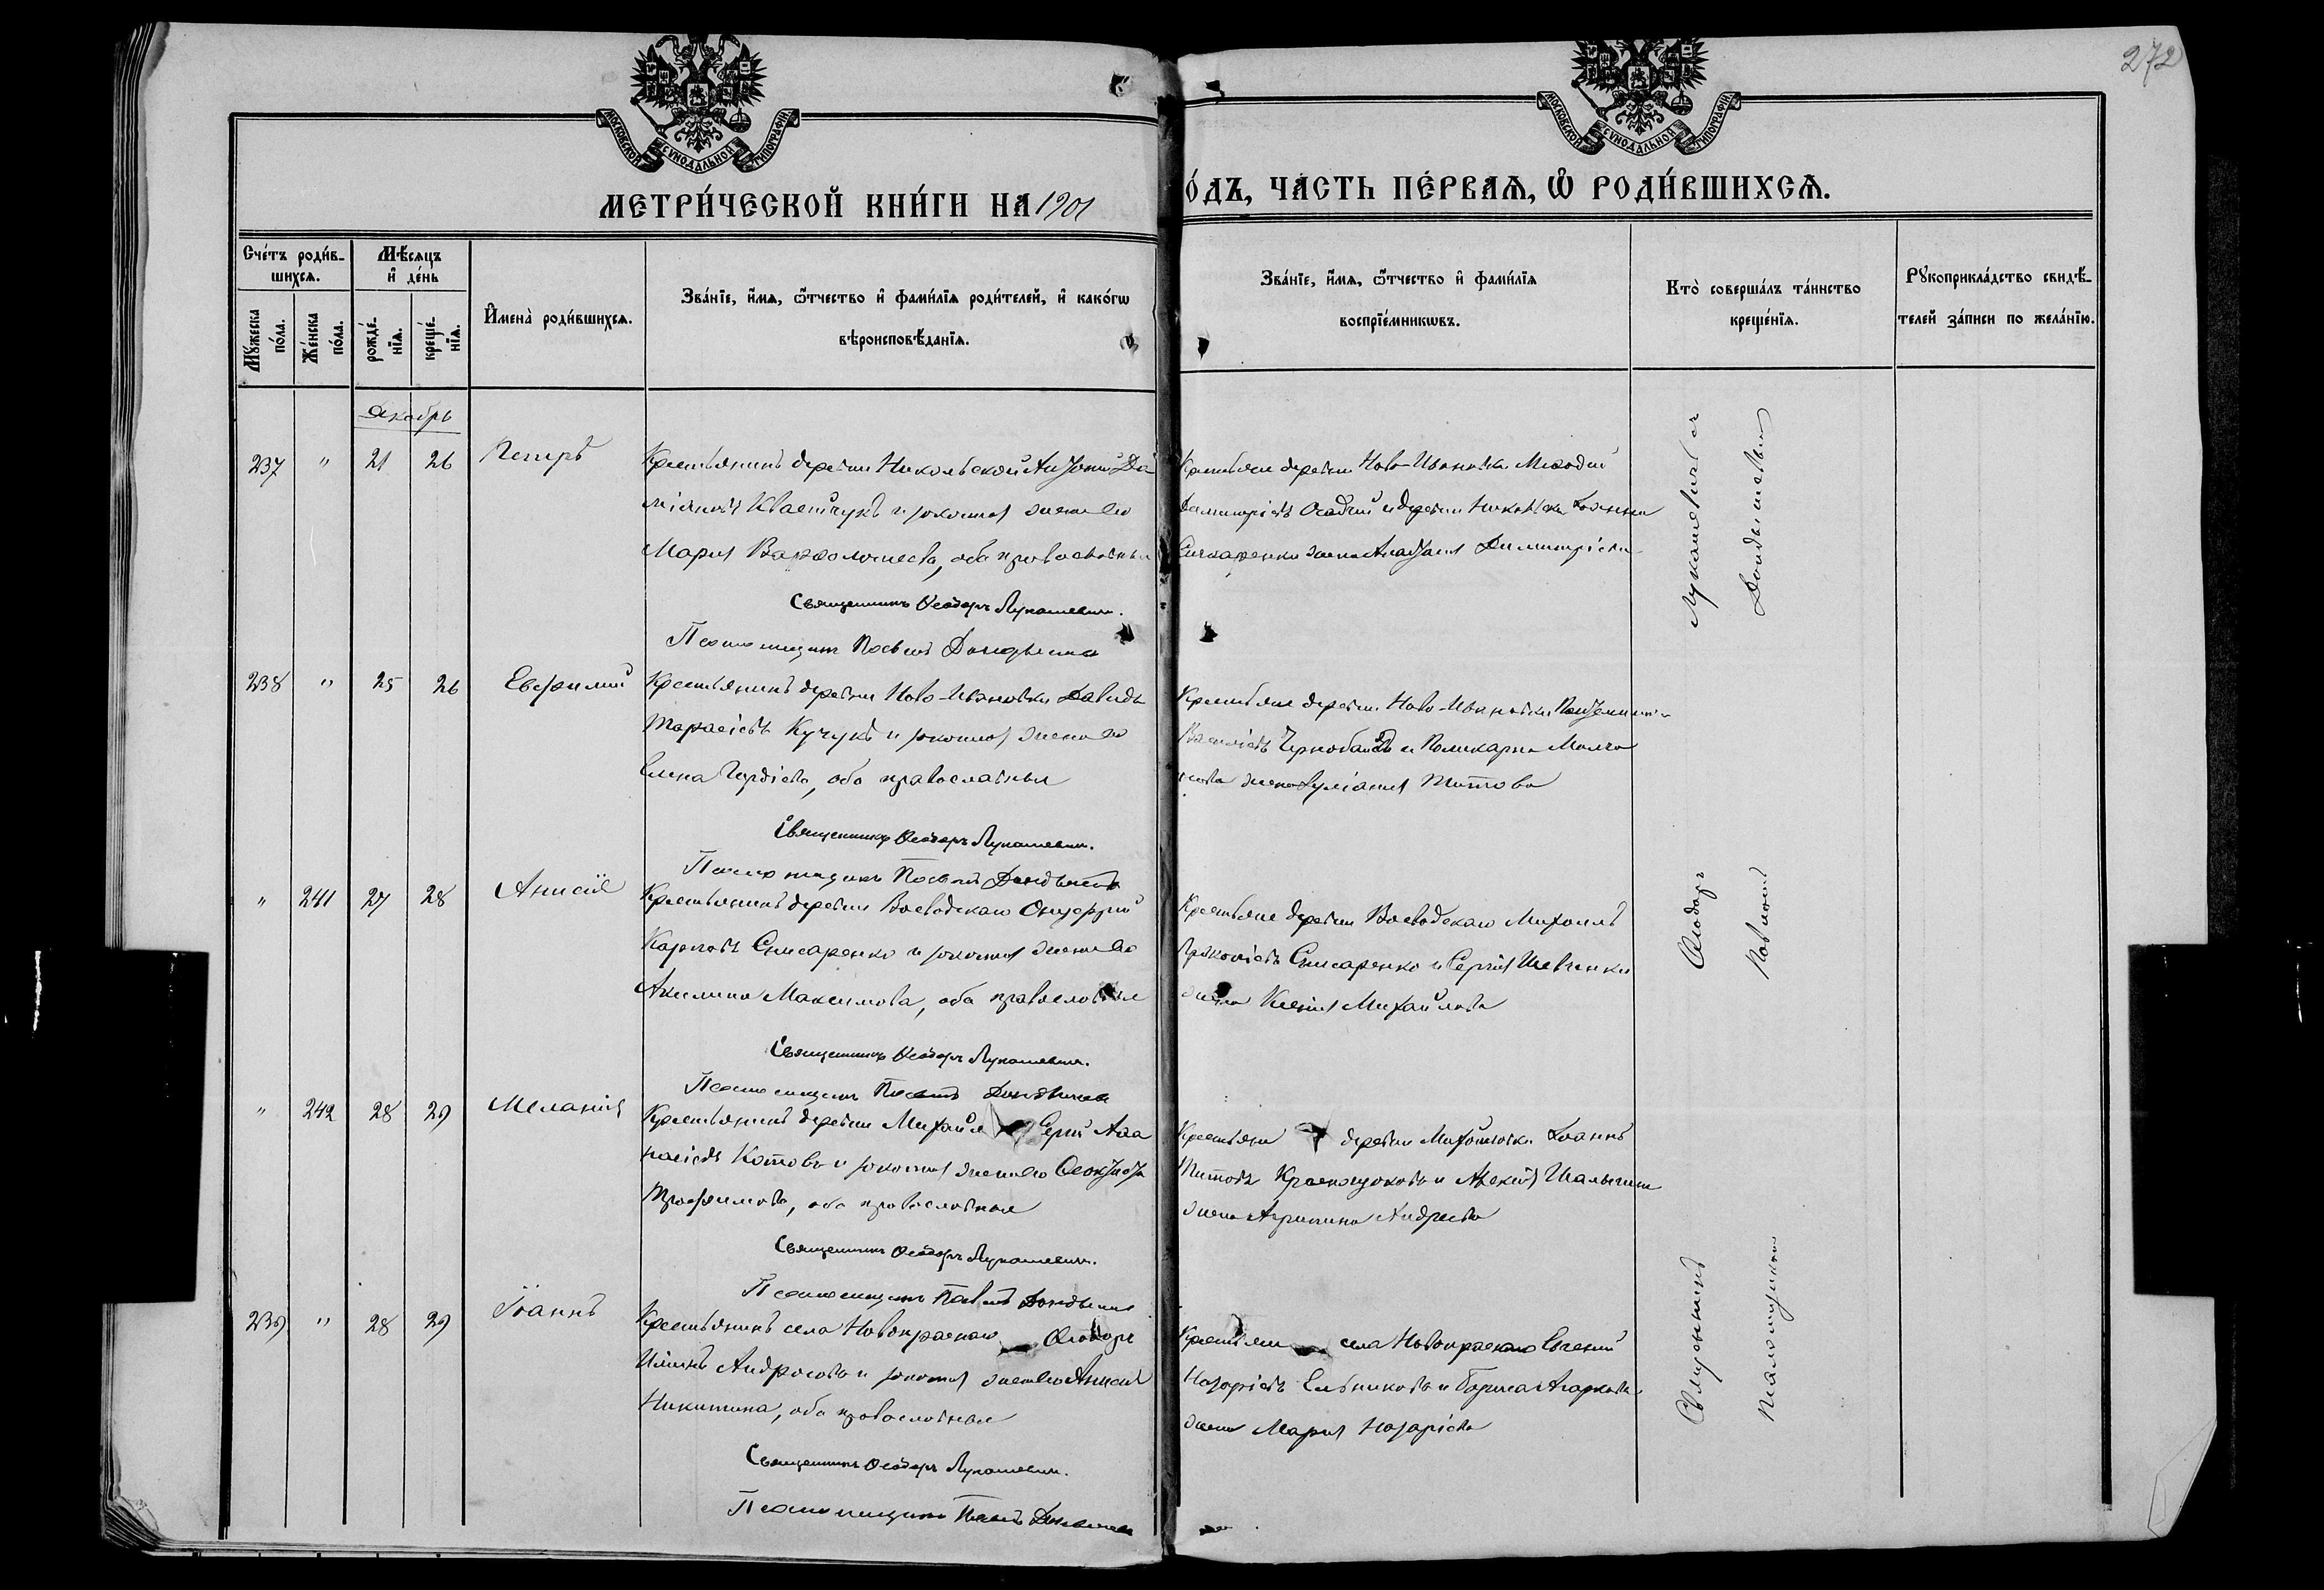 272
МОСКОВСКОЙ СУНОДАЛЬНОЙ ТИПОГРАФІИ
МОСКОВСКОЙ СУНОДАЛЬНОЙ ТИПОГРАФІИ
МЕТРИ́ЧЕСКОЙ КНИ́ГИ НА 1901
О́ДЪ, ЧА́СТЬ ПЕ́РВАѦ, Ѡ РОДИ́ВШИХСѦ.
Счетъ роди́в-
шихсѧ.
Мꙋжеска по́ла.
Же́нска по́ла.
Мѣ́сѧцъ
и де́нь
рожде́-
нїѧ.
креще́-
нїѧ.
Имена̀ роди́вшихсѧ.
Зва́нїе, и́мѧ, ѻ́тчество и фами́лїѧ роди́телей, и како́гѡ
вѣроисповѣ́данїѧ.
Зва́нїе, и́мѧ, ѻ́тчество и фами́лїѧ
воспрїе́мникѡвъ.
Кто̀ соверша́лъ та́инство
креще́нїѧ.
Рꙋкоприкла́дство свидѣ́-
телей за́писи по жела́нїю.
Декабрь
237 " 21 26 Петръ
Крестьянинъ деревни Никольской
Квасничукъ и законная жена его
Марія Варѳоломеева, оба православные
Священникъ Ѳеодоръ Лукашевич.
Псаломщикъ Павелъ
Крестьяне деревни Ново-Ивановки Меѳодій
Димитріевъ Осадчій и деревни
жена Димитріева
238 " 25 26 Евфимій
Крестьянинъ деревни Ново-Ивановки Давидъ
Тарасіевъ Кучукъ и законная жена его
Елена Гордіева, оба православные
Священникъ Ѳеодоръ Лукашевич.
Псаломщикъ Павелъ
Крестьяне деревни Ново-Ивановки
Василіевъ и Поликарпа
жена Титова
" 241 27 28 Анисія
Крестьянинъ деревни Воеводскаго Онуфрій
Карповъ Слисаренко и законная жена его
Акилина Максимова, оба православные
Священникъ Ѳеодоръ Лукашевич.
Псаломщикъ Павелъ
Крестьяне деревни Воеводскаго Михаилъ
Прокопіевъ Слисаренко и Сергія Шевченки
жена Ксенія Михайлова
" 242 28 29 Меланія
Крестьянинъ деревни Сергій Аѳа
насіевъ Котовъ и законная жена его
Трофимова, оба православные
Священникъ Ѳеодоръ Лукашевич.
Псаломщикъ Павелъ
Крестьяне деревни Михайловки Іоаннъ
Титовъ Краснощоковъ и Алексія Шалыгина
жена Агрипина Андреева
239 " 28 29 Іоаннъ
Крестьянинъ села Новокраснаго Ѳеодоръ
Ильинъ Андросовъ и законная жена его Анисія
Никитина, оба православные
Священникъ Ѳеодоръ Лукашевич.
Псаломщикъ Павелъ
Крестьяне села Новокраснаго Евгеній
Назаріевъ Ельниковъ и Бориса Агаркова
жена Марія Назаріева
Священникъ Ѳеодоръ Лукашевичъ
Псаломщикъ Павелъ